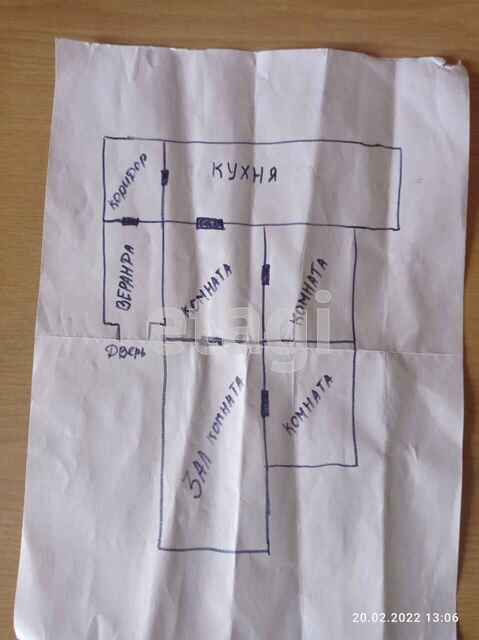 КУХНЯ
КОРИДОР
ВЕРАНДА
КОМНАТА
КОМНАТА
Дверь
etagi
ЗАЛ КОМНАТА
КОМНАТА
20.02.2022 13:06